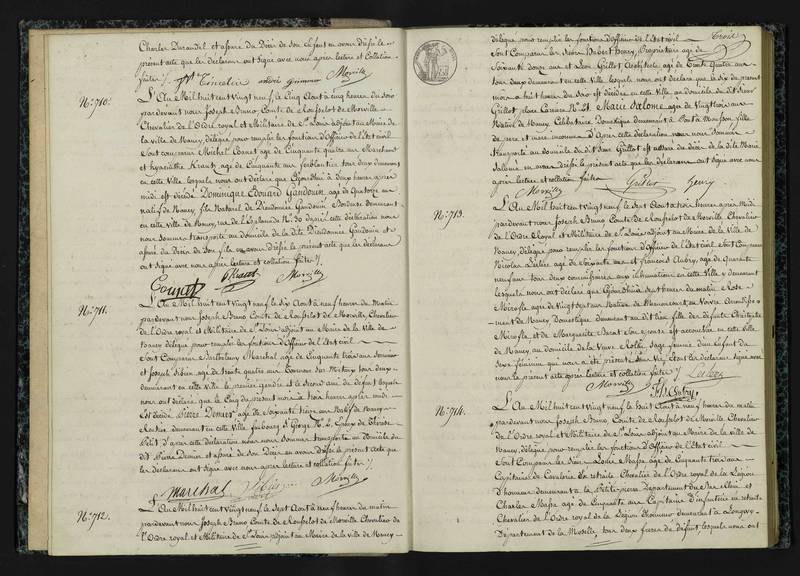 Charles Durandel et assuré du Décès de son Enfant en avons dressé le
présent acte que les déclarans ont signé avec nous après lecture et Collation
faites ./. Morville
N.º 710. L'An Mil huit cent vingt neuf, le Cinq Août à cinq heures du soir
pardevant nous Joseph Bruno Comte de Rousselot de Morville
Chevalier de l'Ordre royal et Militaire de S.t Louis adjoint au Maire de
la ville de Nancy, délégué pour remplir les fonctions d'Officier de l'Etat civil
Sont comparus Michel Cornet agé de Cinquante quatre ans Marchand
et hyacinthe Krautz agé de Cinquante ans ferblantier tous deux demeurant
en cette Ville, lesquels nous ont déclaré que Cejourd'hui à deux heures après
midi est décédé Dominique Edouard Gaudouin, agé de Quatorze ans
natif de Nancy, fils Naturel de Dieudonnée Gaudouin, Brodeuse demeurant
en cette Ville de Nancy, rue de l'Esplanade N.º 30 D'après cette déclaration nous
nous sommes transporté au domicile de la dite Dieudonnée Gaudouin et
assuré du Décès de son fils en avons dressé le présent acte que les déclarans
ont signé avec nous après lecture et collation faites ./.
Cornet Krautz Morville
N.º 711. L'An Mil huit cent vingt neuf le Six Août à neuf heures du Matin
pardevant nous Joseph Bruno Comte de Rousselot de Morville, Chevalier
de l'Ordre royal et Militaire de S.t Louis adjoint au Maire de la Ville de
Nancy délégué pour remplir les fonctions d'Officier de l'Etat civil
Sont Comparus Barthelemy Marchal agé de Cinquante trois ans
et Joseph agé de trente quatre ans Tourneur sur Métaux tous deux
demeurant en cette Ville le premier gendre et le second ami du défunt lesquels
nous ont déclaré que le Cinq du présent mois à trois heures après midi
Est décédé Pierre Demier agé de Soixante treize ans Natif de Nancy
Rentier demeurant en cette Ville, faubourg S.t George N.º 2, Epoux de Thérèse
Petit D'après cette déclaration nous nous sommes transporté au Domicile du
dit Pierre Demier et assuré de Son Décès en avons dressé le présent Acte que
les déclarans ont signé avec nous après lecture et collation faites ./.
Marchal Morville
N.º 712. L'An Mil huit cent vingt neuf le Sept Août à neuf heures du matin
pardevant nous Joseph Bruno Comte de Rousselot de Morville Chevalier de
l'Ordre royal et Militaire de S.t Louis adjoint au Maire de la ville de Nancy
Trois
délégué pour remplir les fonctions d'Officier de l'Etat civil
Sont Comparus les Sieurs Hubert Henry, Propriétaire agé de
Soixante douze ans et Léon Grillot Architecte agé de trente quatre ans
tous deux demeurant en cette ville, lesquels nous ont déclaré que le Six du présent
mois à huit heures du soir est décédée en cette ville au domicile du dit Sieur
Grillot, place Carrière N.º 24 Marie Salome, agée de Vingt trois ans
Native de Nancy, Célibataire Domestique demeurant à Pont à Mousson, fille
de père et mère inconnus D'après cette déclaration nous nous sommes
transporté au domicile du dit Sieur Grillot et assuré du décès de la dite Marie
Salomé en avons dressé le présent acte que les déclarans ont signé avec nous
après lecture et collation faites ./.
Morville Grillot henry
N.º 713. L'An Mil huit cent vingt neuf le Sept Août à trois heures après Midi
pardevant nous Joseph Bruno Comte de Rousselot de Morville Chevalier
de l'Ordre Royal et Militaire de S.t Louis adjoint au Maire de la Ville de
Nancy, délégué pour remplir les fonctions d'Officier de l'Etat civil Sont Comparus
Nicolas Leclerc agé de Soixante ans et François Aubry, agé de Quarante
neuf ans tous deux commissaires aux inhumations en cette Ville y demeurant
lesquels nous ont déclaré que Cejourd'hui à sept heures du matin Rose
Mirofle agée de Vingt sept ans Native de
de Nancy, Domestique, demeurant au dit lieu fille de défunts Christophe
Mirofle, et de Marguerite Barat son epouse est accouchée en cette Ville
de Nancy, au domicile de la Veuve Rollin, Sage femme d'un Enfant du
Sexe féminin qui nous a été présenté Sans Vie, dont les déclarans signé avec
nous le présent acte après lecture et collation faites ./. Leclerc
Morville F.s Aubry
N.º 714. L'An Mil huit cent vingt neuf le huit Août à neuf heures du matin
pardevant nous Joseph Bruno Comte de Rousselot de Morville Chevalier
de l'Ordre royal et Militaire de S.t Louis adjoint au Maire de la ville de
Nancy, délégué pour remplir les fonctions d'Officier de l'Etat civil
Sont Comparus les Sieurs Louis Masse, agé de Cinquante trois ans
Capitaine de Cavalerie en retraite Chevalier de l'Ordre royal de la Légion
D'honneur demeurant à la Petite pierre Département du Bas Rhin et
Charles Masse agé de Cinquante ans Capitaine d'infanterie en retraite
Chevalier de l'Ordre royal de la Légion d'honneur demeurant à Longwy
Département de la Moselle, tous deux frères du défunt, lesquels nous ont